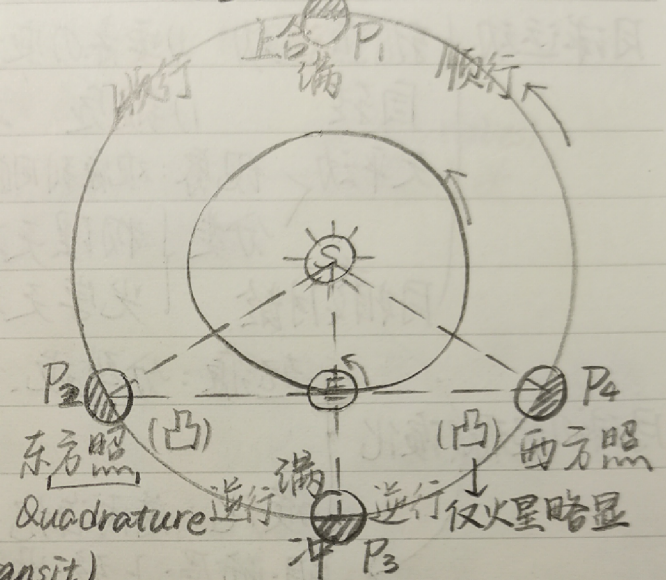 上合 P₁
满
顺行
顺行
S
E
P₂
P₄
(凸)
(凸)
东方照
西方照
Quadrature
逆行
满
逆行
仅火星略显
冲
P₃
ansit)